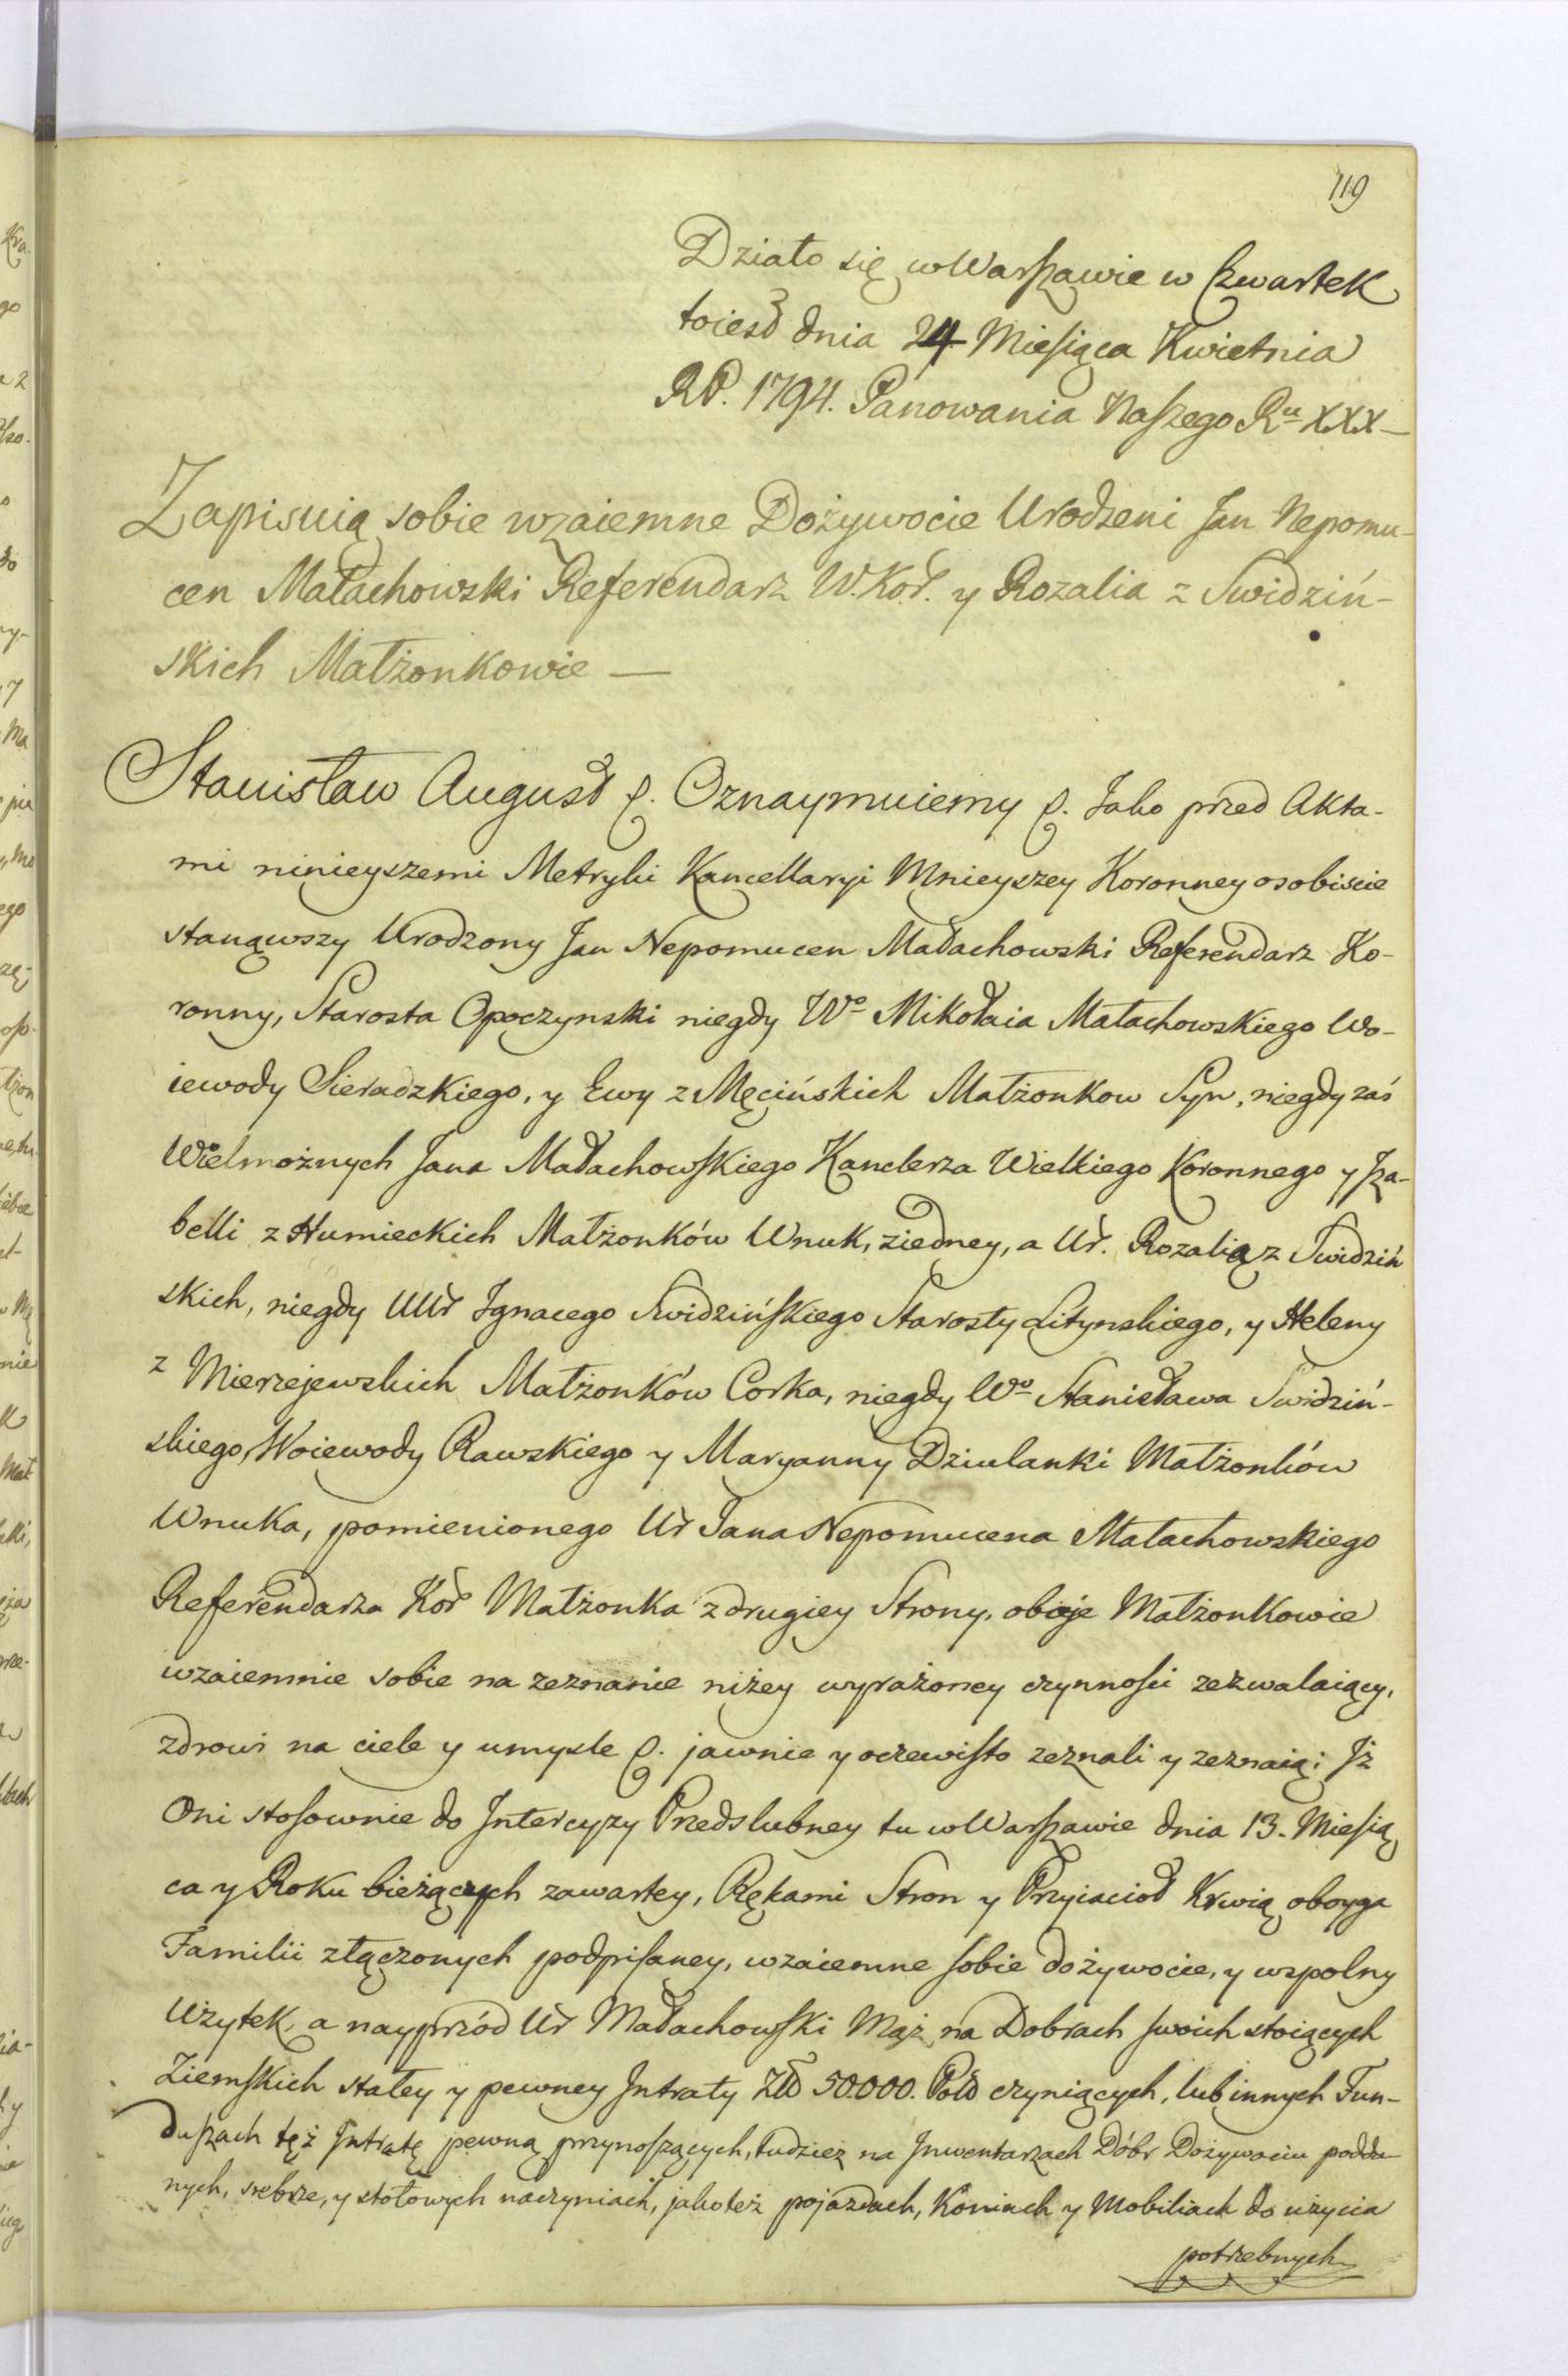 119
Działo się w Warszawie w Czwartek
toiest dnia 24 Miesiąca Kwietnia
RP. 1794. Panowania Naszego Ru XXX —
Zapisuią sobie wzaiemne Dożywocie Urodzeni Jan Nepomu-
cen Małachowski Referendarz W. Kor. y Rozalia z Swidziń-
skich Małżonkowie —
Stanisław August &. Oznaymuiemy &. Jako przed Akta-
mi ninieyszemi Metryki Kancellaryi Mnieyszey Koronney osobiscie
stanąwszy Urodzony Jan Nepomucen Małachowski Referendarz Ko-
ronny, Starosta Opoczynski niegdy Wo Mikołaia Małachowskiego Wo-
iewody Sieradzkiego, y Ewy z Męcińskich Małżonkow Syn, niegdy zaś
Wielmożnych Jana Małachowskiego Kanclerza Wielkiego Koronnego y Iza-
belli z Humieckich Małżonków Wnuk, ziedney, a Ur. Rozalią z Swidziń
skich, niegdy UUr Ignacego Swidzińskiego Starosty Litynskiego, y Heleny
z Mierzejewskich Małżonków Corka, niegdy Wo Stanisława Swidziń-
skiego, Woiewody Rawskiego y Maryanny Dziulanki Małżonków
Wnuka, pomienionego Ur Jana Nepomucena Małachowskiego
Referendarza Kor Małżonka z drugiey Strony, oboje Małżonkowie
wzaiemnie sobie na zeznanie niżey wyrażoney czynności zezwalaiący,
zdrowi na ciele y umysle &. jawnie y oczewisto zeznali y zeznaią; Iż
Oni stosownie do Intercyzy Przedslubney tu w Warszawie dnia 13. Miesią
ca y Roku bieżących zawartey, Rękami Stron y Przyiacioł Krwią oboyga
Familii złączonych podpisaney, wzaiemne sobie dożywocie, y wspolny
Użytek, a nayprzód Ur Małachowski Mąż na Dobrach swoich stoiących
Ziemskich stałey y pewney Intraty Zło 50.000. Pols czyniących, lub innych Fun-
duszach też Intratę pewną przynoszących, tudzież na Inwentarzach Dóbr Dożywociu podda
nych, srebrze, y stołowych naczyniach, jakoteż pojazdach, Koniach y Mobiliach do użycia
potrzebnych